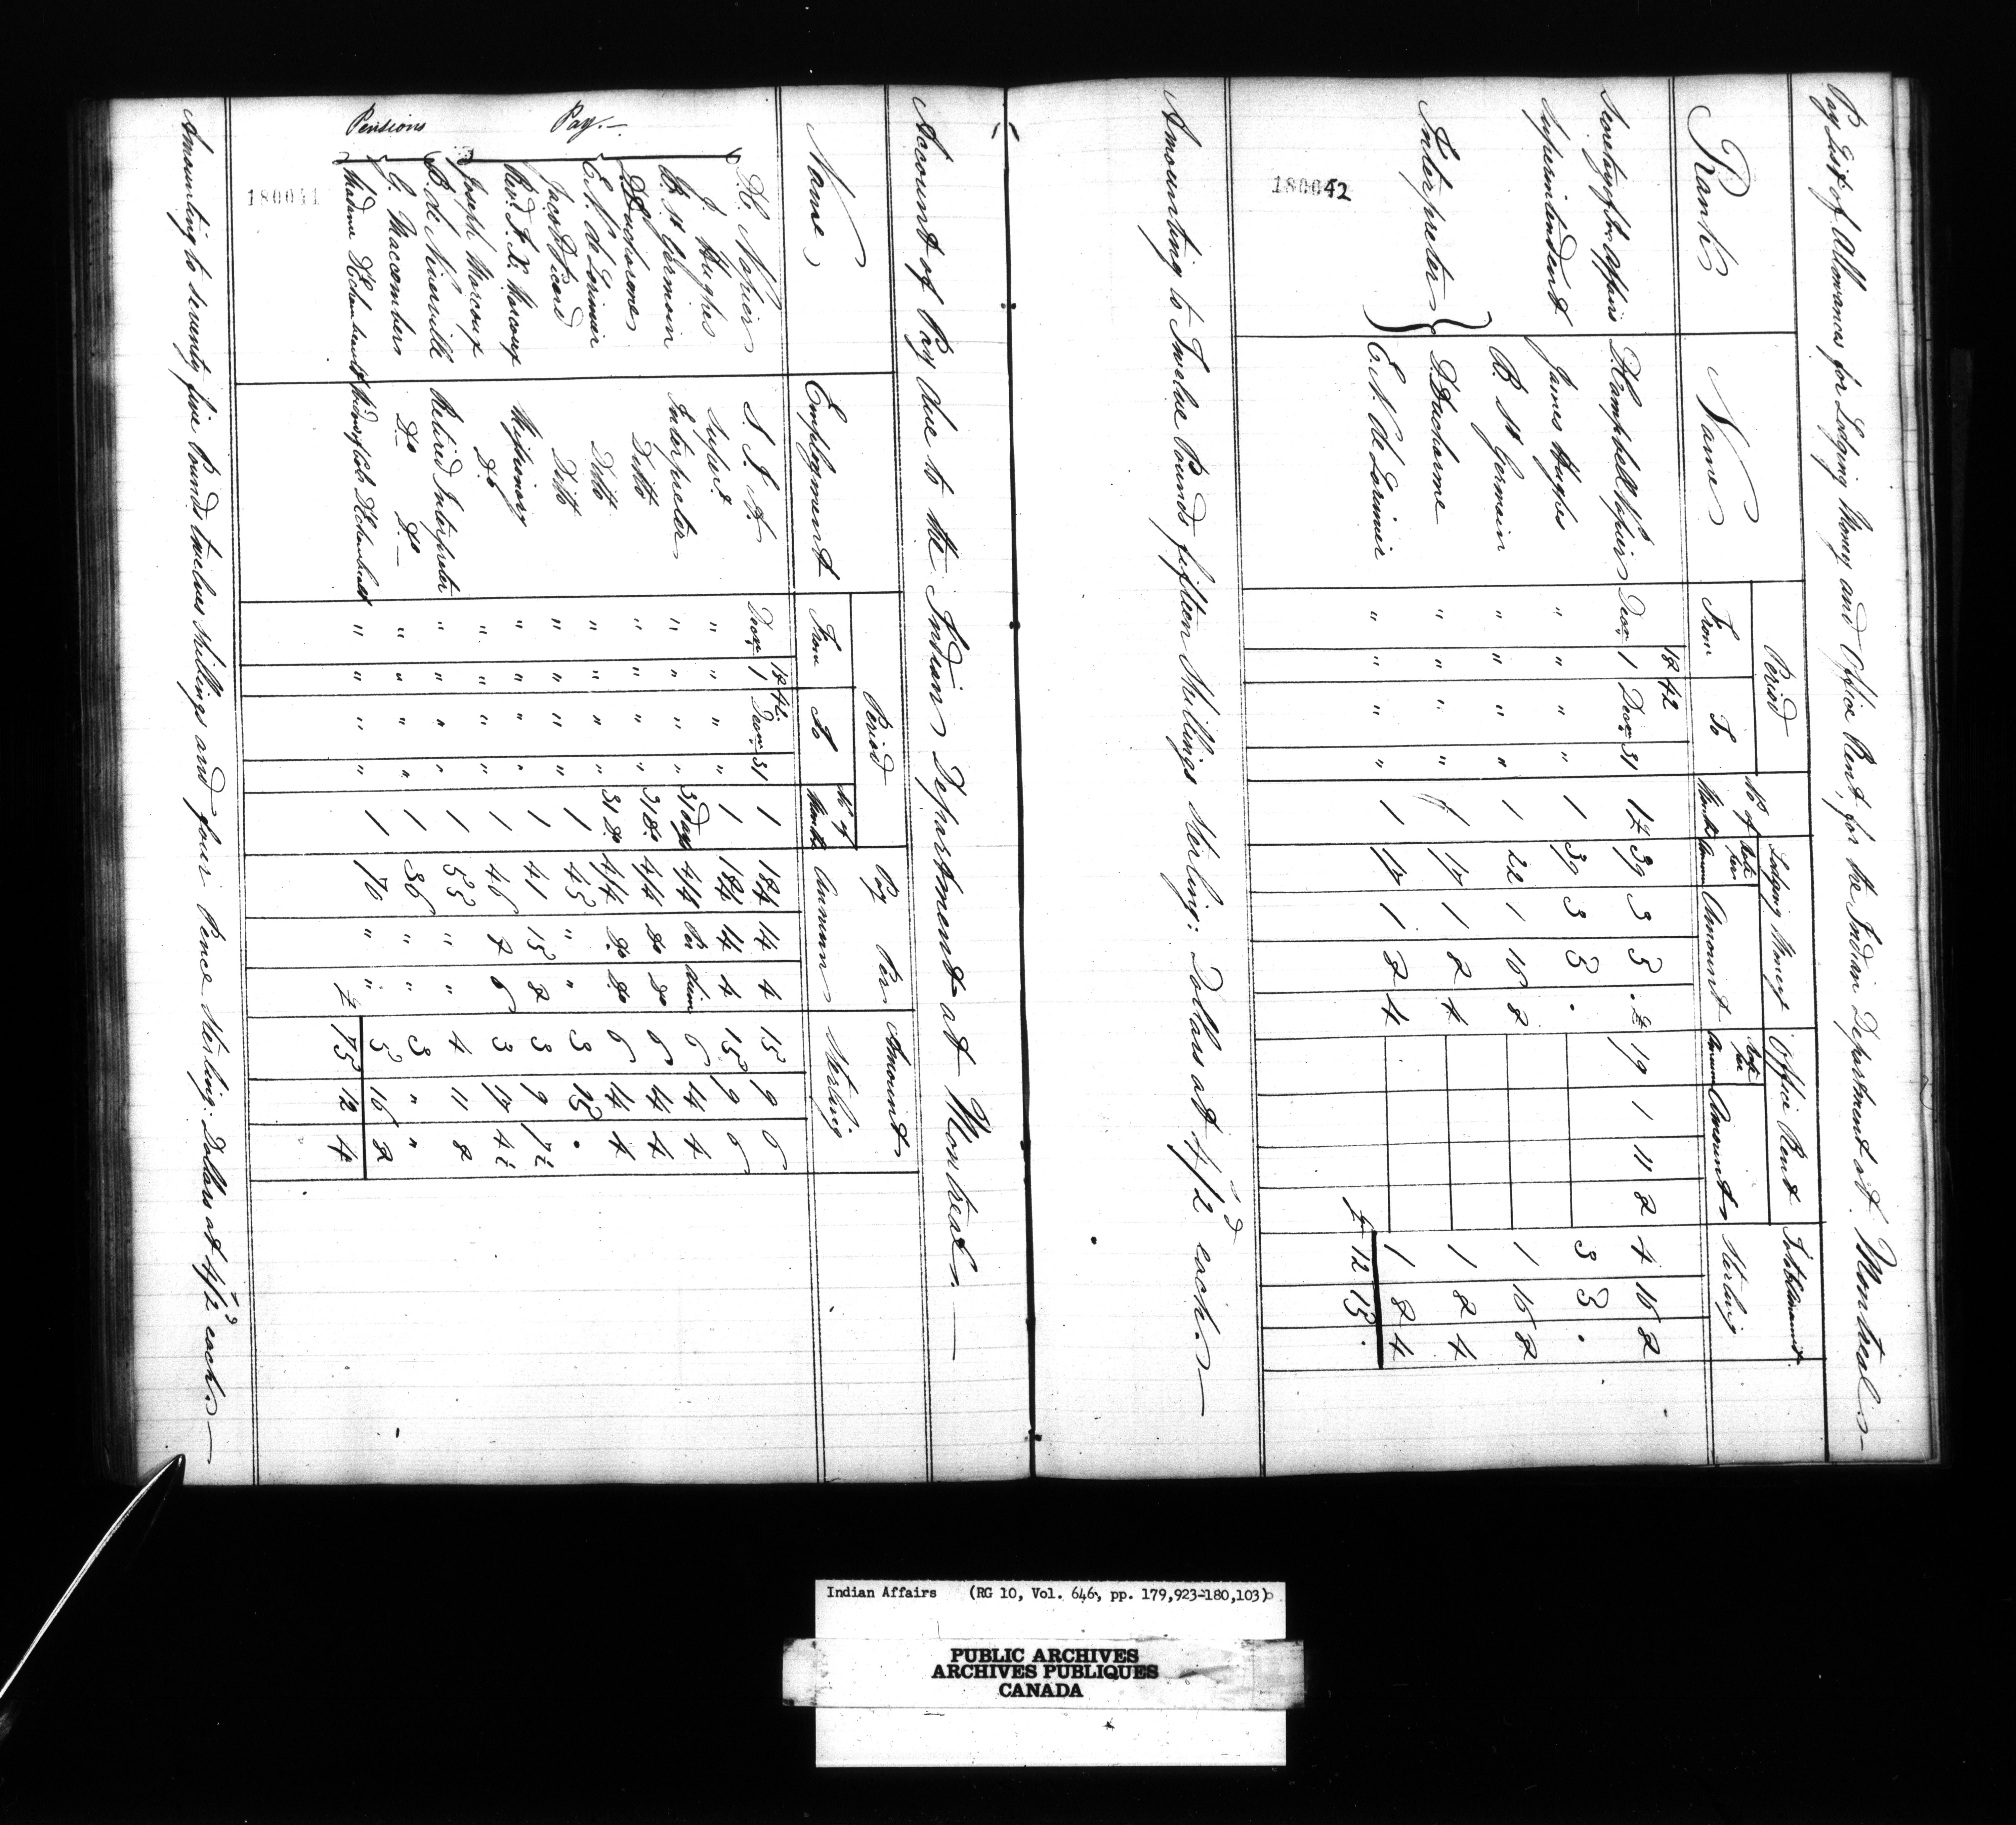 Pay List of Allowances for Lodging Money and Office Rent, for the Indian Department at Montreal.
Rank Name Period No of Months Lodging Money Office Rent Total Amount Sterling
From To Rate per Annum Amount Rate per Annum Amount
1842
Secretary for Affairs D. Campbell Napier Decr 1 Decr 31 1 £ 39 3 5 . £ 19 1 11 8 4 16 8
Superintendent James Hughes " " " " 1 39 3 5 . 3 5 .
Interpreters B St Germain " " " " 1 22 1 16 8 1 16 8
D. Ducharme " " " " 1 17 1 8 4 1 8 4
E. N. de Lorimier " " " " 1 17 1 8 4 1 8 4
£ 12 15 .
Amounting to Twelve Pounds fifteen Shillings Sterling: Dollars at 4/2 each.
180042
Account of Pay due to the Indian Department at Montreal.
Name Employment Period No of Months Pay Per Annum Amount Sterling
From To
1842
Pay.
D.C. Napier S I A Decr 1 Decr 31 1 184 14 4 15 9 6
J. Hughes Supint. " " " " 1 184 14 4 15 9 6
B. St Germain Interpreter " " " " 31 days 4/4 Per diem 6 14 4
D. Ducharme Ditto " " " " 31 Do 4/4 Do Do 6 14 4
E. N. de Lorimier Ditto " " " " 31 Do 4/4 Do Do 6 14 4
Jacob Picard Ditto " " " " 1 45 " " 3 15 .
Revd. F. X. Marcoux Missionary " " " " 1 41 15 8 3 9 7½
Joseph Marcoux Do " " " " 1 46 8 6 3 17 4½
Pensions
B. de Niverville Retired Interpreter " " " " 1 55 " " 4 11 8
G. Maccomber Do Do " " " " 1 36 " " 3 " "
Madame " " " " 1 70 " " 5 16 8
£ 75 12 4
Amounting to seventy five Pounds twelve shillings and four Pence sterling: Dollars at 4/2 each.
180041
Indian Affairs (RG 10, Vol. 646, pp. 179,923-180,103)
PUBLIC ARCHIVES
ARCHIVES PUBLIQUES
CANADA